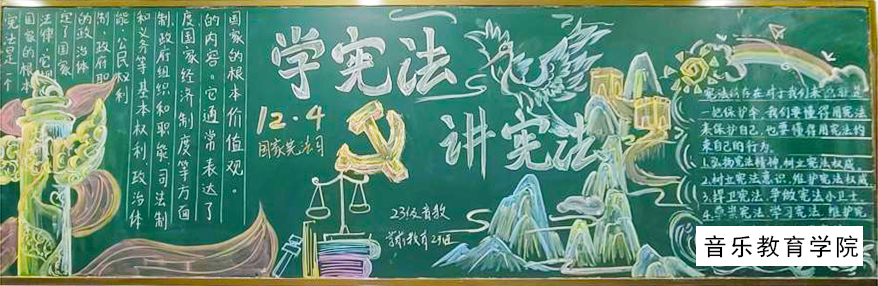 宪法是一个
国家的根本
法律，它规
定了国家
的政治体
制，政府职
能，公民权利
和义务等基本权利，政治体
制，政府组织和职能，司法制
度国家经济制度等方面
的内容。它通常表达了
国家的根本价值观。
学宪法
讲宪法
12·4
国家宪法日
23级音教
学前教育2班
宪法的存在对于我们来说就是
一把保护伞，我们要懂得用宪法
来保护自己，也要懂得用宪法约
束自己的行为。
1.弘扬宪法精神，树立宪法权威
2.树立宪法意识，维护宪法权威
3.捍卫宪法，争做宪法小卫士
4.尊崇宪法、学习宪法、维护宪
音乐教育学院